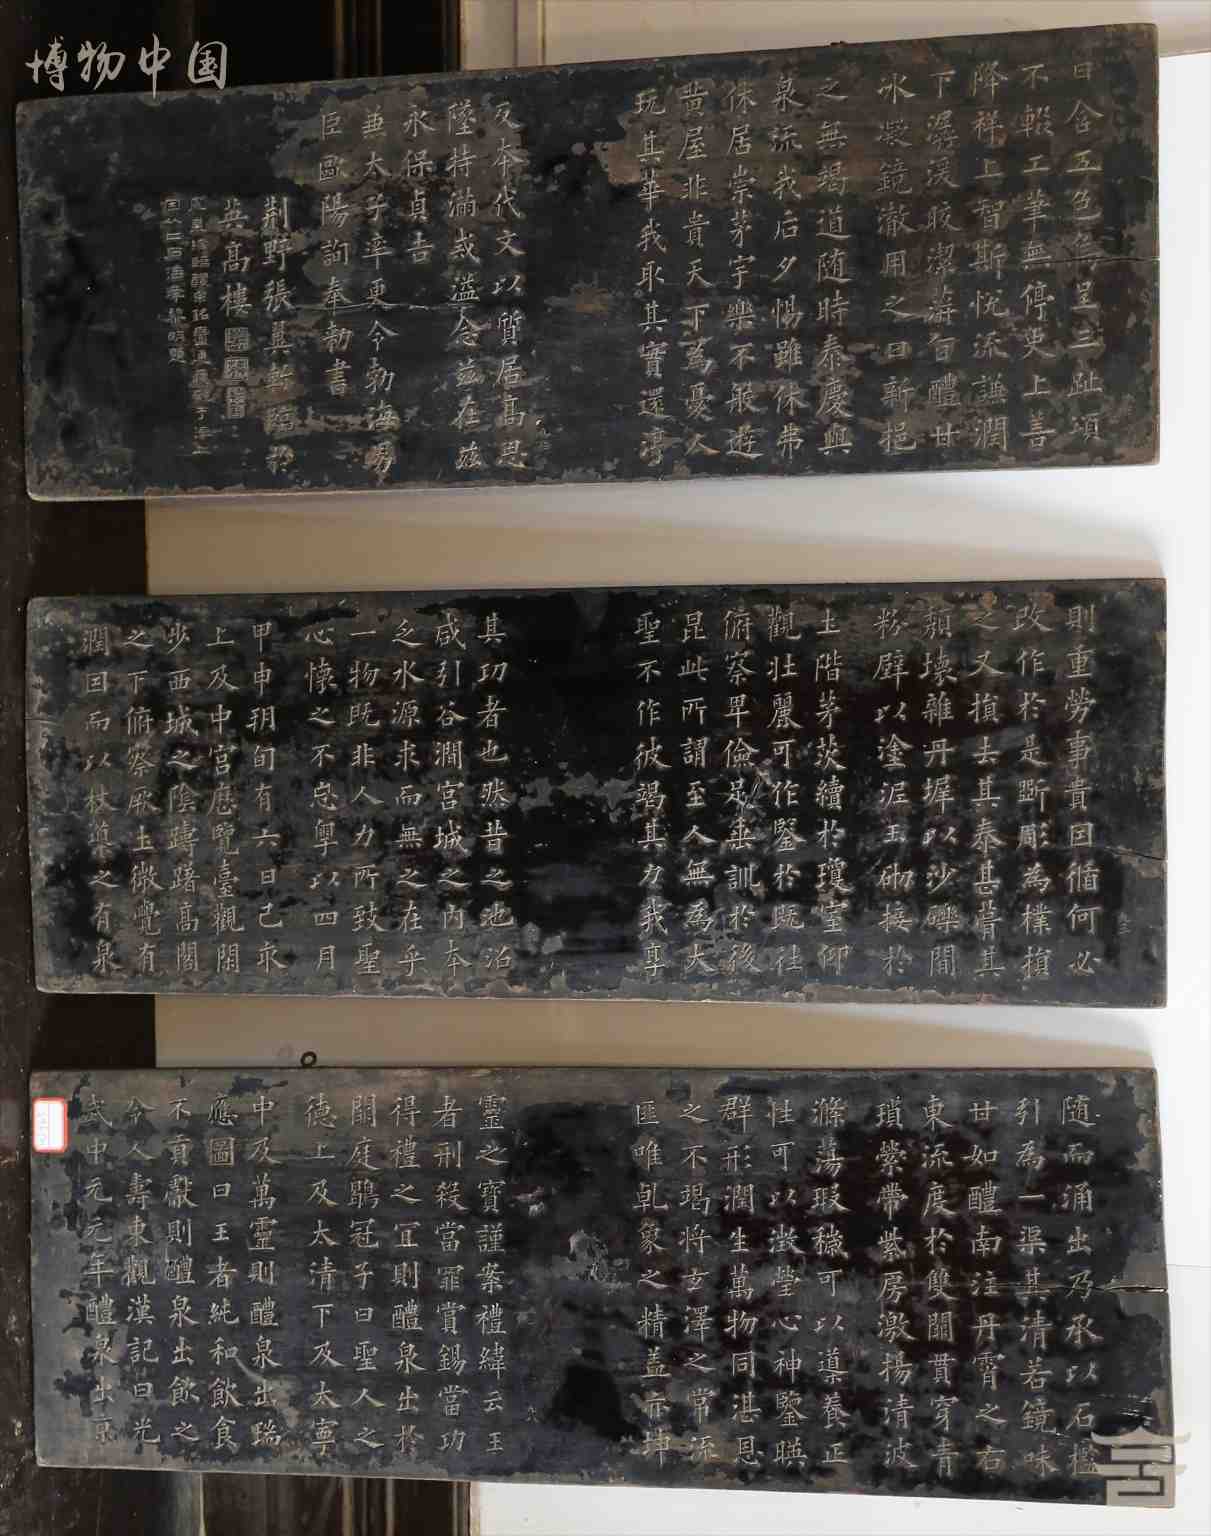 博物中国
日含五色烏呈三趾頌
不輟工筆無停史上善
降祥上智斯悅流謙潤
下潺湲皎潔蓱旨醴甘
冰凝鏡澈用之日新挹
之無竭道隨時泰慶與
泉流我后夕惕雖休弗
休居崇茅宇樂不般遊
黃屋非貴天下為憂人
玩其華我取其實還淳
反本代文以質居高思
墜持滿戒溢念茲在茲
永保貞吉
兼太子率更令勃海男
臣歐陽詢奉勑書
荊野張翼軫臨於
英高樓
則重勞事貴因循何必
改作於是斲彫為樸損
之又損去其泰甚葺其
頹壞雜丹墀以沙礫間
粉壁以塗泥玉砌接於
土階茅茨續於瓊室仰
觀壯麗可作鑒於既往
俯察卑儉足垂訓於後
昆此所謂至人無為大
聖不作彼竭其力我享
其功者也然昔之池沼
咸引谷澗宮城之內本
乏水源求而無之在乎
一物既非人力所致聖
心懷之不忘粵以四月
甲申朔旬有六日己亥
上及中宮歷覽臺觀閑
步西城之陰躊躇高閣
之下俯察厥土微覺有
潤因而以杖導之有泉
隨而涌出乃承以石檻
引為一渠其清若鏡味
甘如醴南注丹霄之右
東流度於雙闕貫穿青
瑣縈帶紫房激揚清波
滌蕩瑕穢可以導養正
性可以澂瑩心神鑒暎
群形潤生萬物同湛恩
之不竭將玄澤之常流
匪唯乹象之精蓋亦坤
靈之寶謹案禮緯云王
者刑殺當罪賞錫當功
得禮之宜則醴泉出於
闕庭鶡冠子曰聖人之
德上及太清下及太寧
中及萬靈則醴泉出瑞
應圖曰王者純和飲食
不貢獻則醴泉出飲之
令人壽東觀漢記曰光
武中元元年醴泉出京